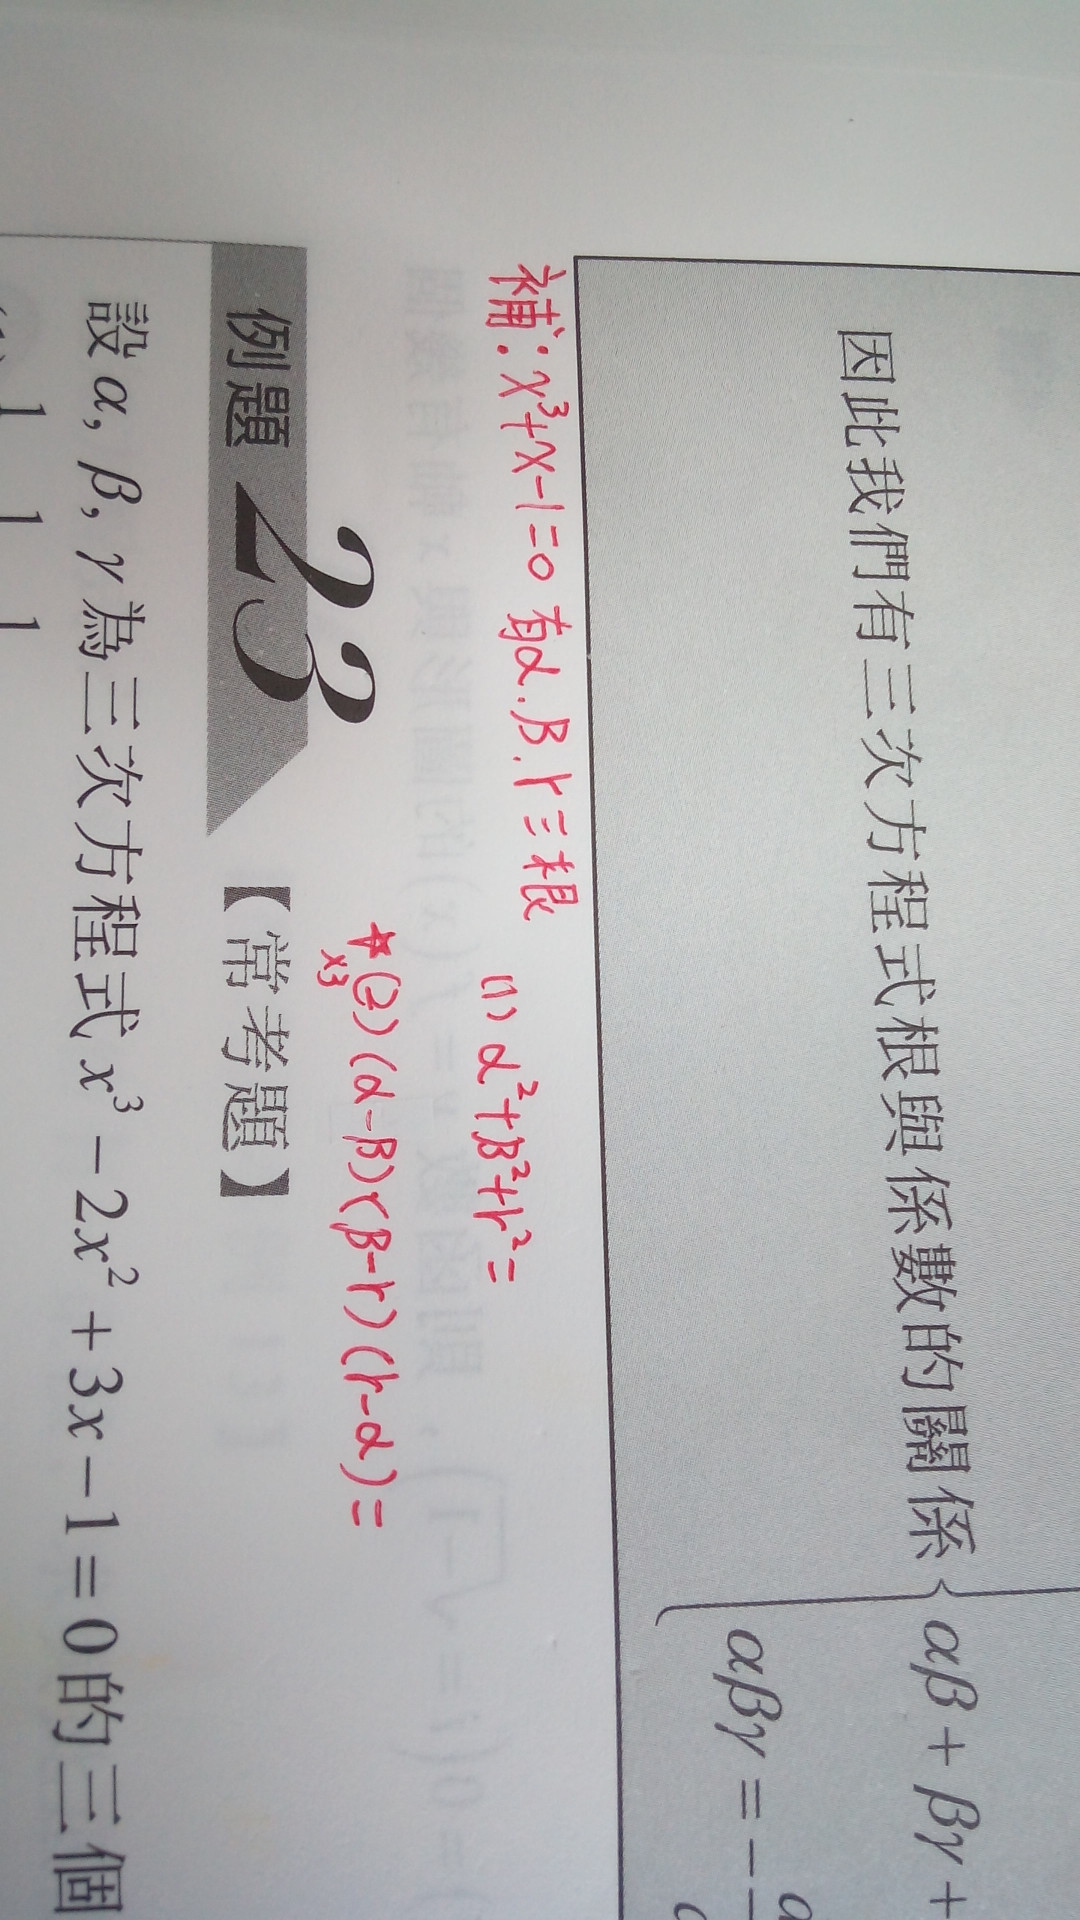 因此我們有三次方程式根與係數的關係
αβ + βγ +
αβγ = −
補：x³+x-1=0 有α.β.γ三根
(1) α²+β²+γ²=
☆(2) (α-β)(β-γ)(γ-α)=
x3
例題 23 【常考題】
設 α, β, γ 為三次方程式 x³ − 2x² + 3x − 1 = 0 的三個